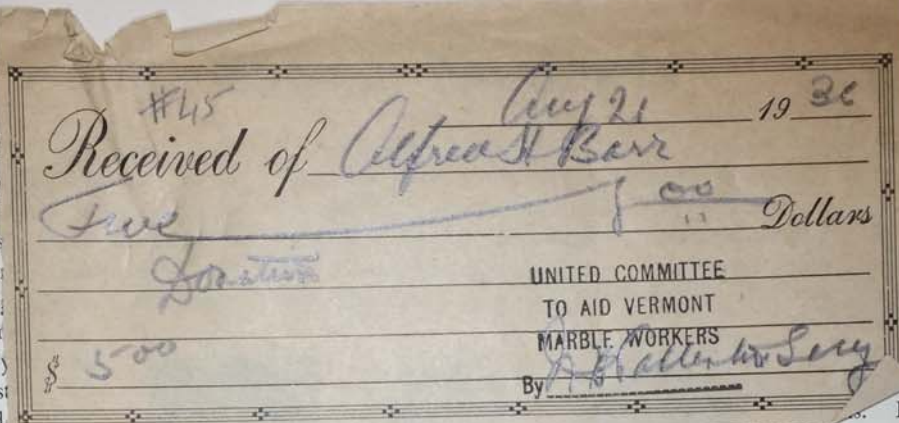 #45
Aug 21 1936
Received of Alfred H Barr
Five 00 Dollars
Donation
UNITED COMMITTEE
TO AID VERMONT
MARBLE WORKERS
$ 5 00
By Secy